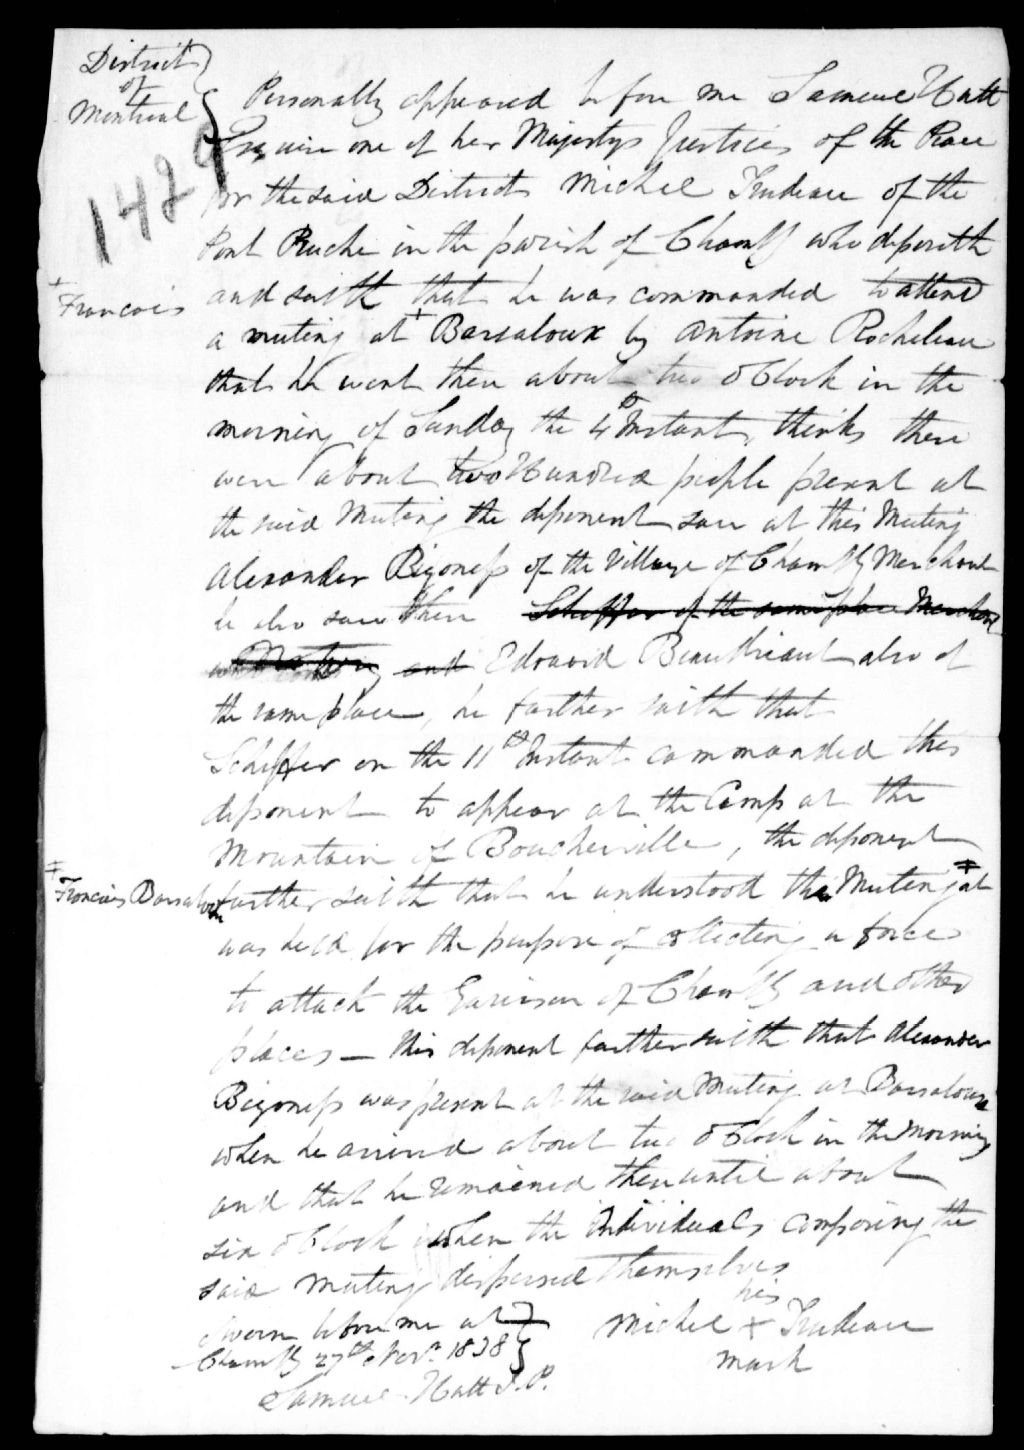 District
of
Montreal
1429
Personally appeared before me Samuel Hatt
Esquire one of her Majestys Justices of the Peace
for the said District Michel Trudeau of the
Pont Ruche in the parish of Chambly who deposeth
and saith that he was commanded to attend
+
Francois
a meeting at + Barsaloux by Antoine Rocheleau
that he went there about two oClock in the
morning of Sunday the 4th Instant, thinks there
were about two Hundred people present at
the said Meeting the deponent saw at this Meeting
Alexander Bigoness of the Village of Chambly Merchant
he also saw there Scheffer of the same place Merchant
and Edouard Beaudriault also of
the same place, he further saith that
Scheffer on the 11th Instant commanded this
deponent to appear at the Camp at the
Mountain of Boucherville, the deponent
‡
Francois Barsaloux
further saith that he understood the Meeting ‡ at
was held for the purpose of collecting a force
to attack the Garrison of Chambly and other
places — this deponent further saith that Alexander
Bigoness was present at the said Meeting at Barsaloux
when he arrived about two oClock in the Morning
and that he remained there until about
six oClock when the individuals composing the
said meeting dispersed themselves
his
Michel + Trudeau
mark
Sworn before me at
Chambly 27th Novr. 1838
Samuel Hatt J.P.